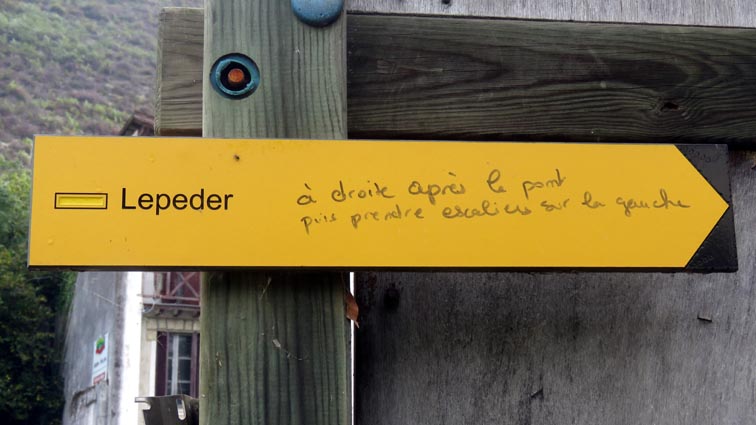 Lepeder
à droite après le pont
puis prendre escaliers sur la gauche